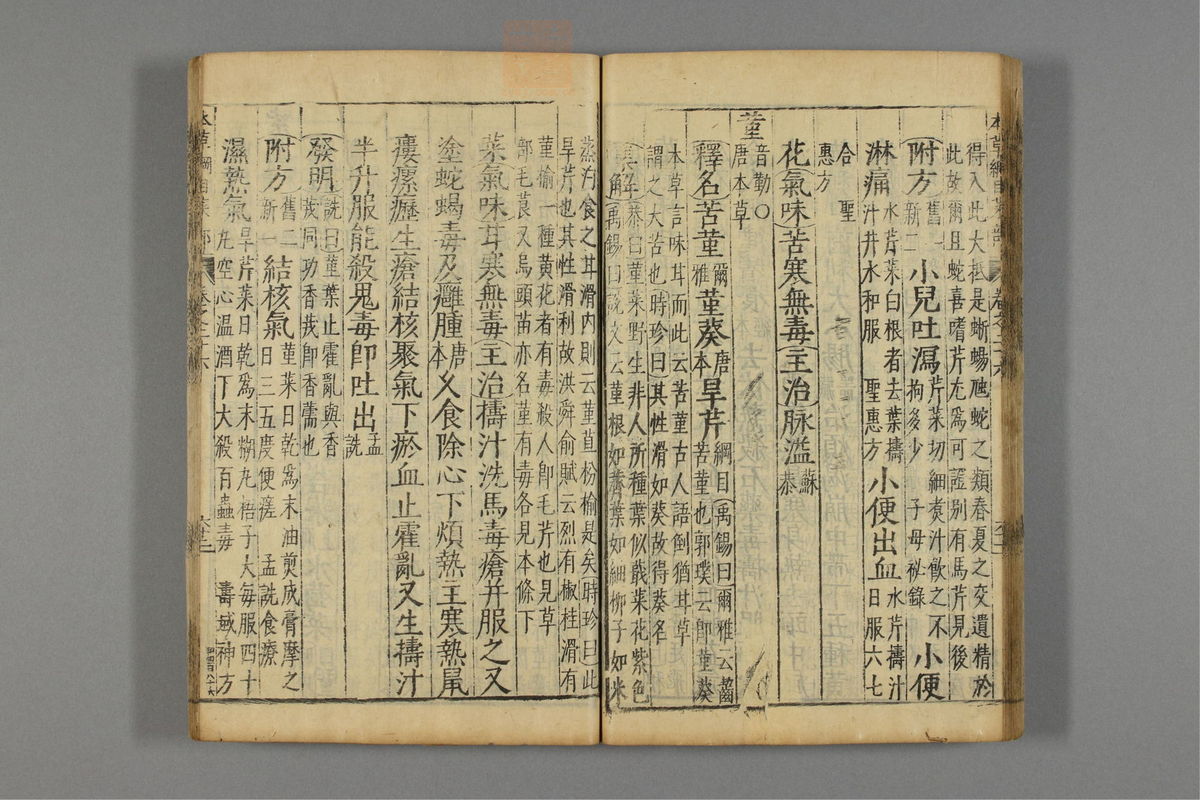 得入此大抵是蜥蜴虺蛇之類春夏之交遺精於
此故爾且蛇喜嗜芹尤爲可證别有馬芹見後
附方舊一新二小兒吐瀉芹菜切細煑汁飲之不拘多少 子母祕錄小便
淋痛水芹菜白根者去葉擣汁井水和服 聖惠方小便出血水芹擣汁日服六七
合 聖惠方
花氣味苦寒無毒主治脉溢蘇恭
菫音勤○唐本草
釋名苦菫爾雅菫葵唐本旱芹綱目禹錫曰爾雅云齧苦菫也郭璞云卽菫葵
本草言味甘而此云苦菫古人語倒猶甘草
謂之大苦也時珍曰其性滑如葵故得葵名
集解恭曰菫菜野生非人所種葉似蕺菜花紫色
禹錫曰說文云菫根如薺葉如細柳子如米
蒸汋食之甘滑内則云菫荁枌榆是矣時珍曰此
旱芹也其性滑利故洪舜俞賦云烈有椒桂滑有
菫榆一種黄花者有毒殺人卽毛芹也見草
部毛茛又烏頭苗亦名菫有毒各見本條下
菜氣味甘寒無毒主治擣汁洗馬毒瘡并服之又
塗蛇蝎毒及癰腫唐本久食除心下煩熱主寒熱鼠
瘻瘰癧生瘡結核聚氣下瘀血止霍亂又生擣汁
半升服能殺鬼毒卽吐出孟詵
發明詵曰菫葉止霍亂與香茙同功香茙卽香薷也
附方舊二新一結核氣菫菜日乾爲末油煎成膏摩之日三五度便瘥 孟詵食療
濕熱氣旱芹菜日乾爲末糊丸梧子大每服四十丸空心温酒下大殺百蟲毒 壽域神方